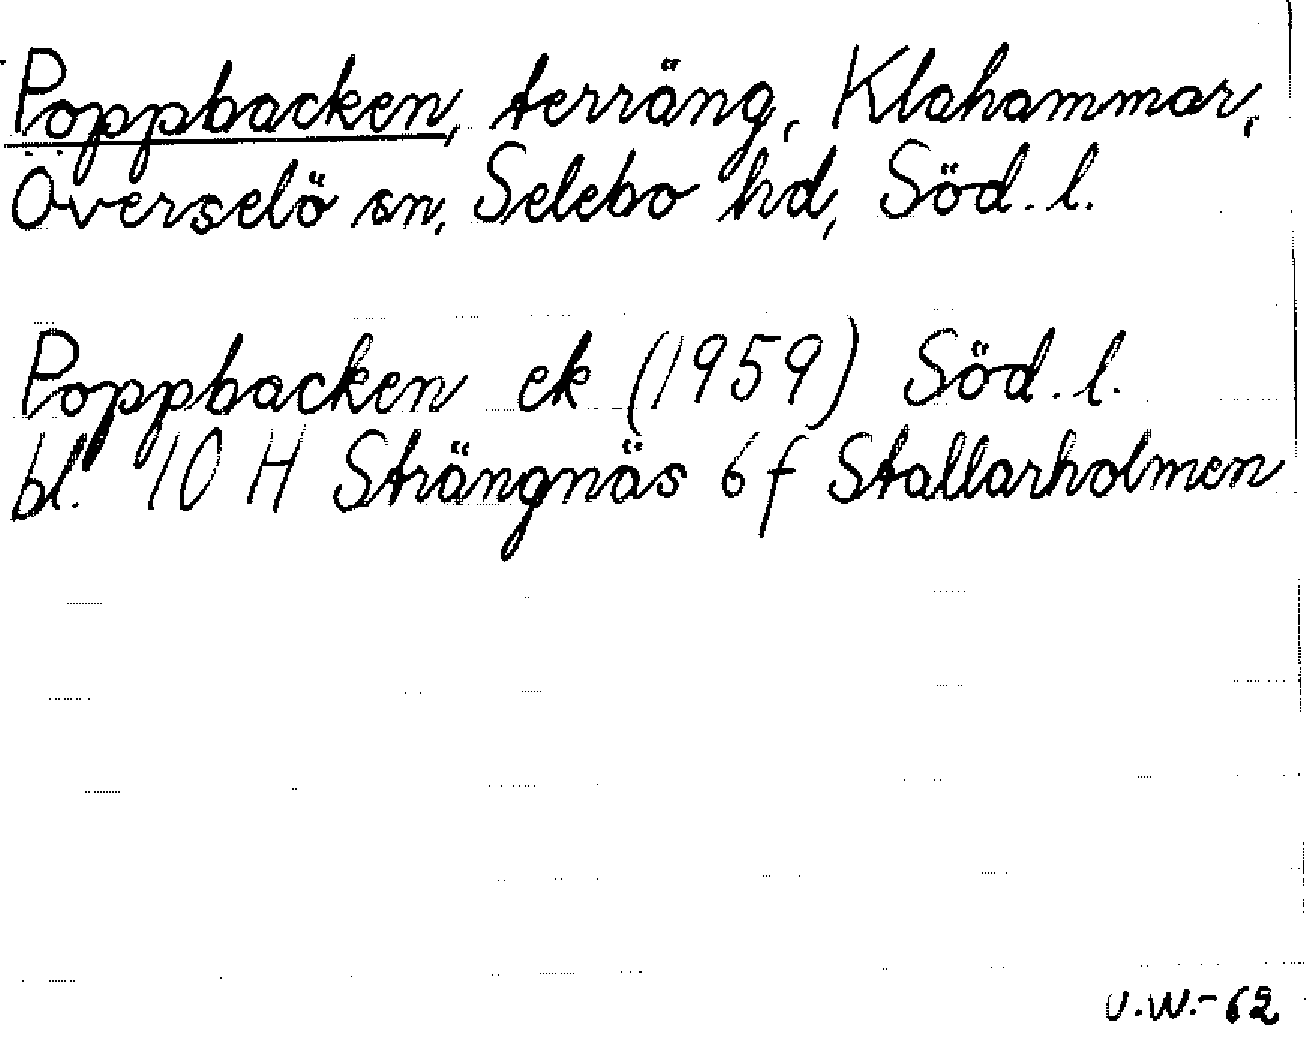 Poppbacken, terräng, Klahammar,
Överselö sn, Selebo hd, Söd. l.
Poppbacken ek (1959) Söd. l.
bl. 10 H Strängnäs 6 f Stallarholmen
U.W.-62